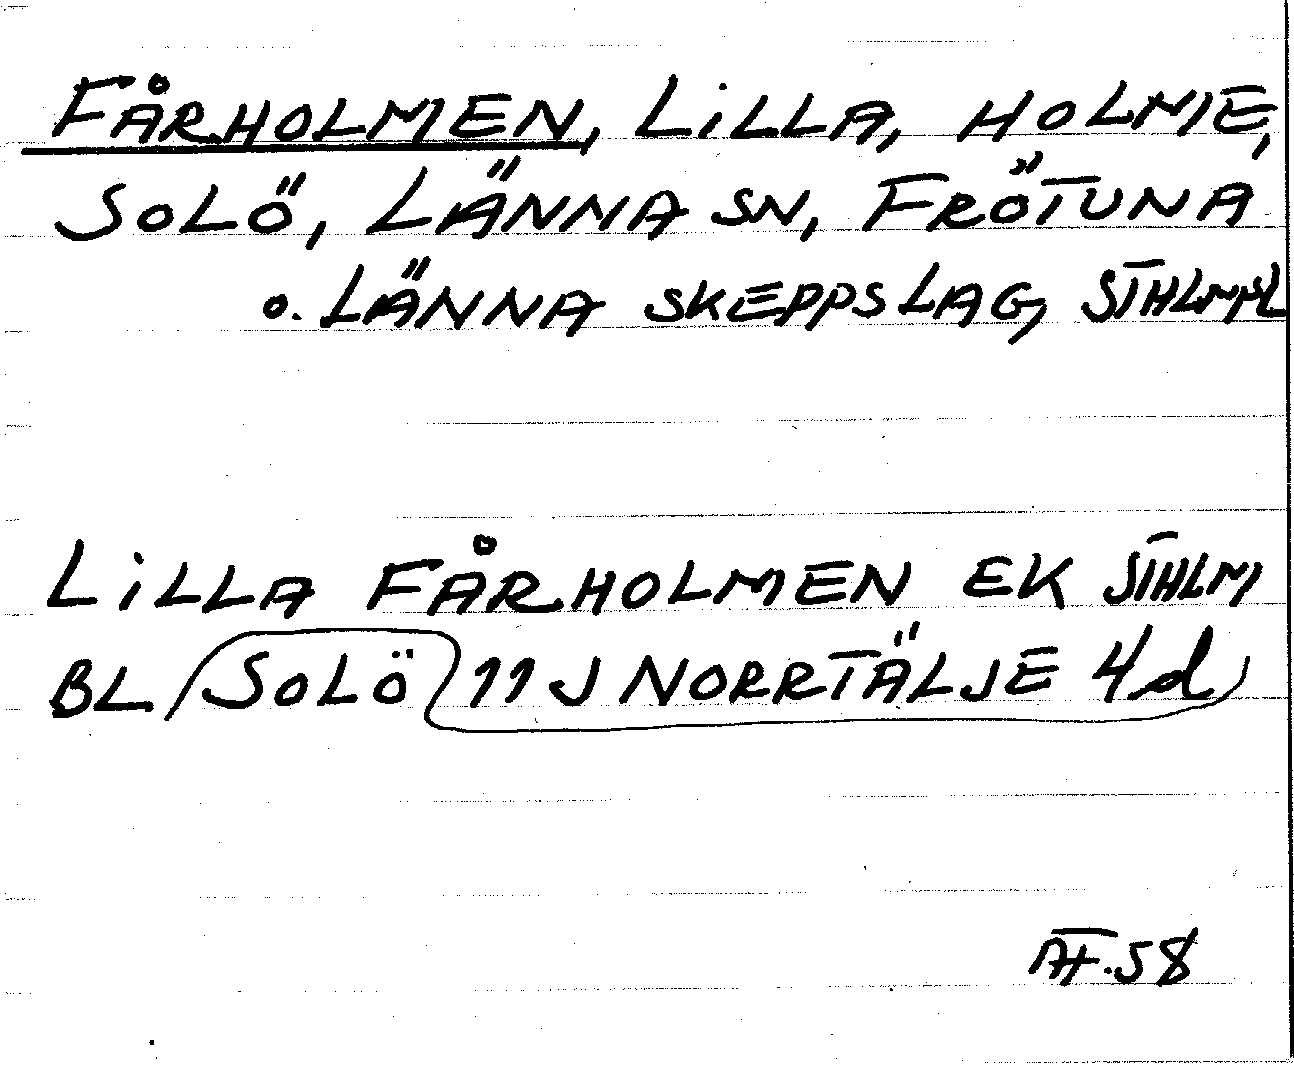 FÅRHOLMEN, LiLLA, HOLME,
SOLÖ, LÄNNA SN, FRÖTUNA
o. LÄNNA SKEPPSLAG, STHLMSL
LiLLA FÅRHOLMEN EK STHLM
BL SOLÖ 11J NORRTÄLJE 4d
AF.58